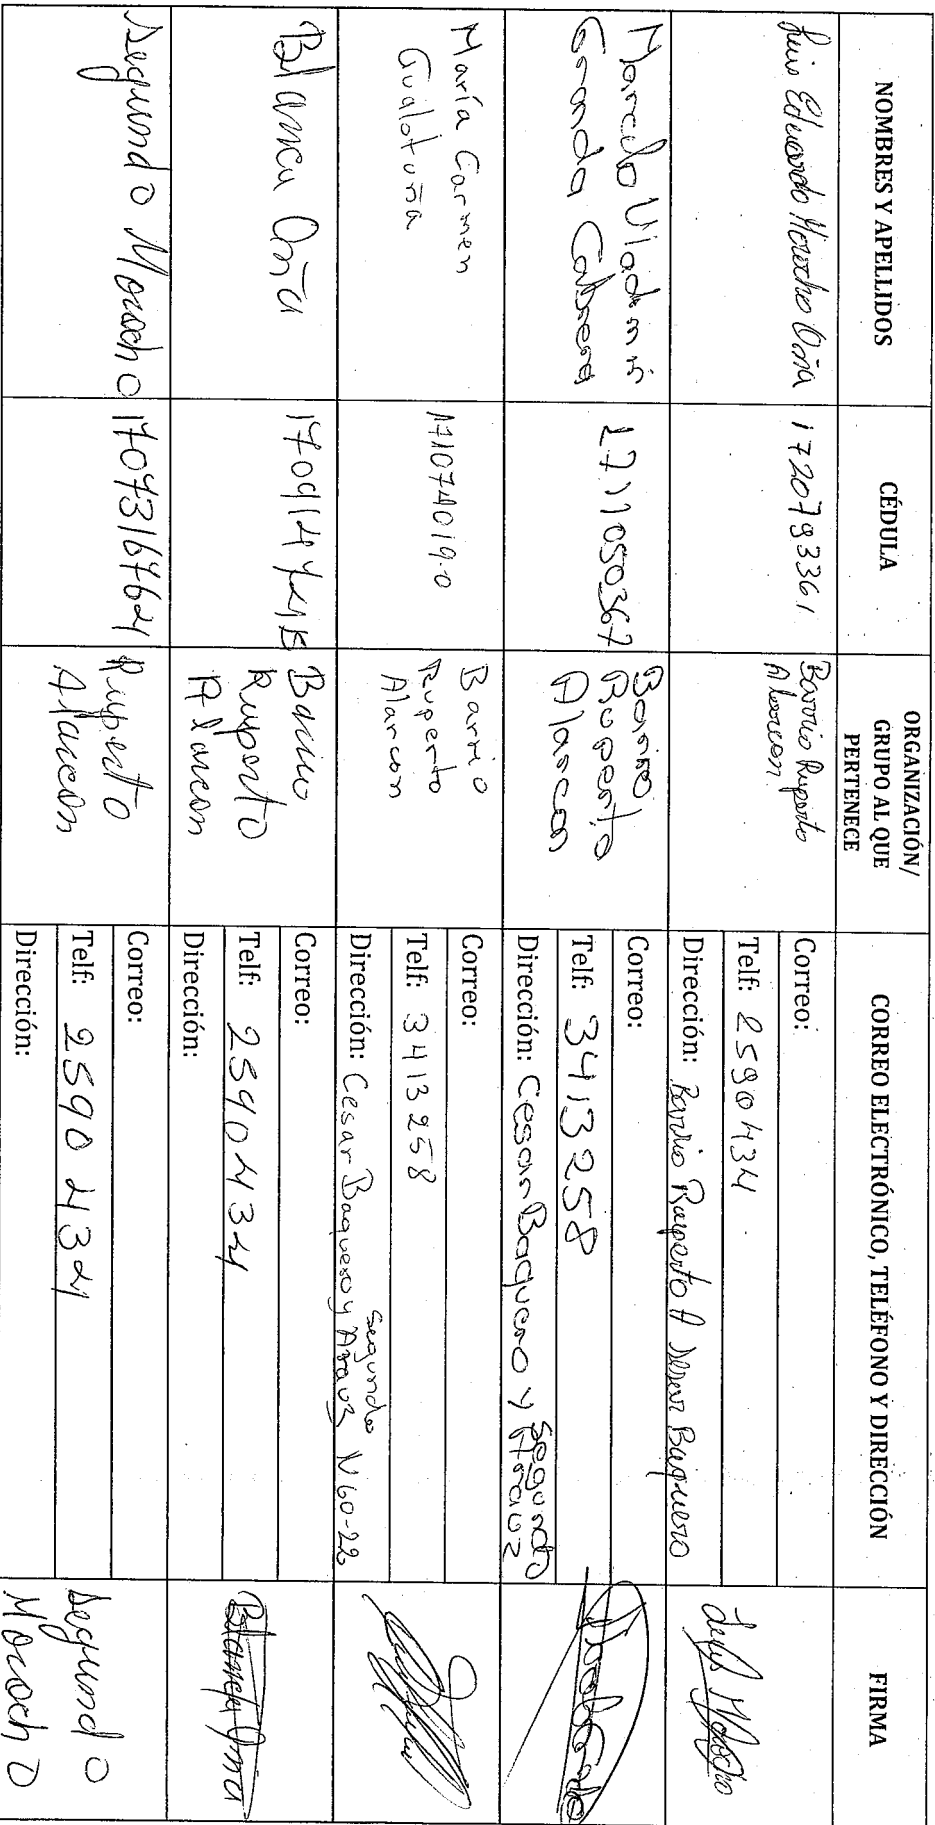 NOMBRES Y APELLIDOS
CÉDULA
ORGANIZACIÓN/
GRUPO AL QUE
PERTENECE
CORREO ELECTRÓNICO, TELÉFONO Y DIRECCIÓN
FIRMA
Luis Eduardo Morocho Oña
1720793361
Barrio Ruperto
Alarcon
Correo:
Telf: 2590434
Dirección: Barrio Ruperto A Baquero
Luis Morocho
Marcelo Vladimir
Granda Cabrera
1711050367
Barrio
Ruperto
Alarcon
Correo:
Telf: 3413258
Dirección: Cesar Baquero y Segundo
Arauz
María Carmen
Gualotuña
171074019-0
Barrio
Ruperto
Alarcon
Correo:
Telf: 3413258
Segundo
Dirección: Cesar Baquero y Arauz N60-22
Blanca Oña
Barrio
Ruperto
Alarcon
Correo:
Telf: 2590434
Dirección:
Blanca Oña
Segundo Morocho
1707316764
Ruperto
Alarcon
Correo:
Telf: 2590434
Dirección:
Segundo
Morocho